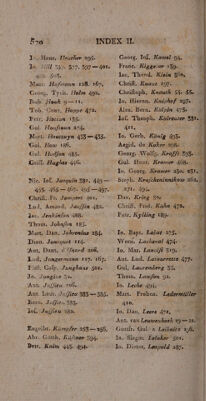 570 INDEX II.
Io. Henr. Heucher 295.
Io. Hill 357. 397. 397—401.
Matt. Hofmann 128. 167.
Georg. Tyck. Holm 492.
Rob. Hook 9—11.
Tob. Conr. Hoppe 472.
Petr. Hotton 154.
Gul. Houstoun 254.
Mart. Houttuyn 433—435.
Gul. How 186.
Gul. Hudson 485.
Guil. Hughes 426.
Nic. Ios. Iacquin 331. 443—
455. 465—467. 495—497.
Christ. Fr. Iampert 501.
Lud. Amand. Iaussin 482.
Iac. Ienkinson 488.
Thom. Iohnson 185.
Matt. Dan. Iohrenius 184.
Dion. Ionquet 124.
Ant. Dant. d'Isnard 226.
Lud. Iungermann 127. 167.
Phil. Casp. Junghans 501.
Io. Jungius 51.
Ant. Jussieu 226.
Ant. Laur. Jussieu 383—385.
Bern. Jussieu 383.
Jos. Jussieu 280.
Engelb. Kæmpfer 253—256.
Abr. Gotth. Kästner 394.
Petr. Kalm 445. 491.
Georg. Ios. Kamel 94.
Franc. Kiggelaer 189.
Iac. Theod. Klein 360.
Christ. Knaut 197.
Christoph. Knauth 55. 56.
Io. Hieron. Kniphof 297.
Alex. Bern. Kolpin 475.
Ios. Theoph. Kölreuter 331.
441.
Io. Gerh. König 493.
Aegid. de Koker 208.
Georg. Wolfg. Krafft 393.
Gul. Henr. Kramer 468.
Io. Georg. Kramer 230. 231.
Steph. Krascheninnikow 261.
271. 494.
Dav. Krieg 80.
Christ. Frid. Kuhn 472.
Petr. Kylling 189.
Io. Bapt. Lalut 175.
Wern. Lachmund 474.
Io. Mar. Lancisi 219.
Ant. Lud. Latourrette 477.
Gul. Laurenberg 35.
Thom. Lawson 91.
Io. Leche 491.
Mart. Froben. Ledermüller
410.
Io. Dan. Leers 471.
Ant. van Leeuwenhoek 19—21.
Gottfr. Gul. a Leibnitz 216.
Io. Siegm. Leinker 501.
Io. Dieter. Leopold 287.